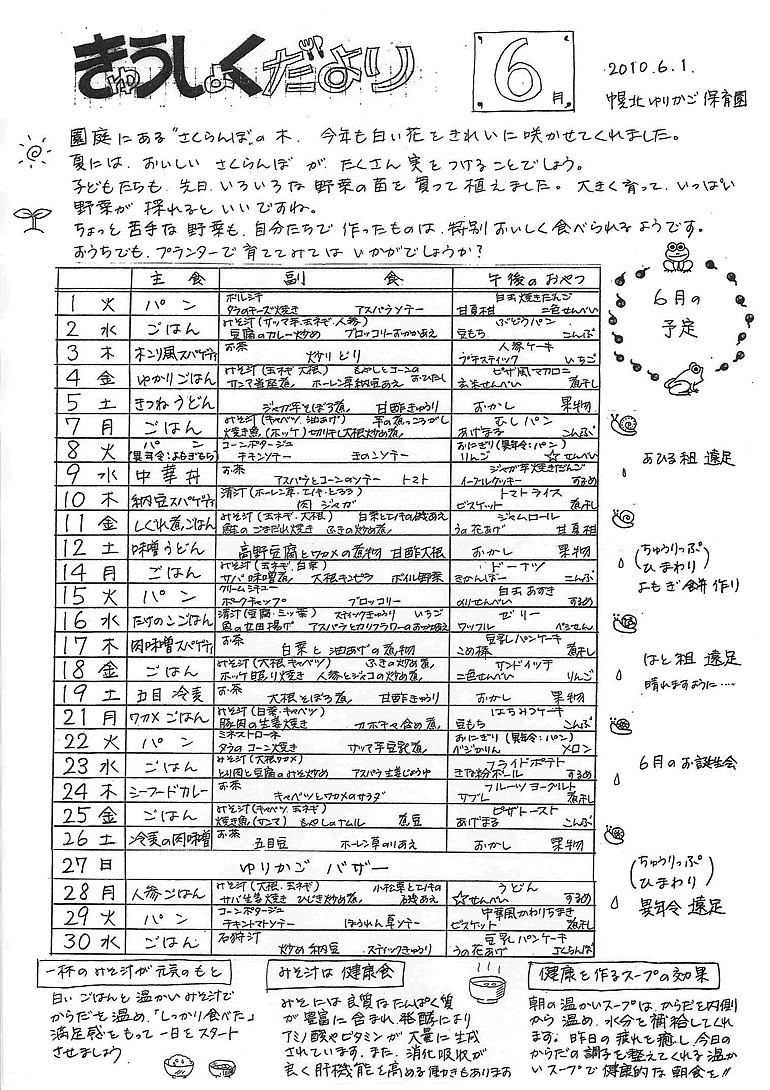 きゅうしょくだより
6月
2010.6.1.
幌北ゆりかご保育園
園庭にある"さくらんぼ"の木、今年も白い花をきれいに咲かせてくれました。
夏には、おいしい さくらんぼ が、たくさん実をつけることでしょう。
子どもたちも、先日、いろいろな野菜の苗を買って植えました。大きく育って、いっぱい
野菜が採れるといいですね。
ちょっと苦手な野菜も、自分たちで作ったものは、特別おいしく食べられるようです。
おうちでも、プランターで育ててみてはいかがでしょうか？
主食 副食 午後のおやつ
1 火 パン ボルシチ タラのチーズ焼き アスパラソテー 白玉焼きだんご 甘夏柑 二色せんべい
2 水 ごはん みそ汁(サツマ芋、玉ネギ、人参) 豆腐のカレー炒め ブロッコリーおかかあえ ぶどうパン 豆もち こんぶ
3 木 お茶 炒りどり 人参ケーキ プチスティック いちご
4 金 ゆかりごはん みそ汁(玉ネギ、大根) もやしとコーンのおひたし サンマ当座煮 ホーレン草納豆あえ ピザ風マカロニ 玄米せんべい 煮干し
5 土 きつねうどん ジャガ芋そぼろ煮 甘酢きゅうり おかし 果物
7 月 ごはん みそ汁(キャベツ、油あげ) 芋の煮っころがし 焼き魚(ホッケ) 切り干し大根炒め煮 むしパン あげまる こんぶ
8 火 パン(異年令:よもぎもち) コーンポタージュ チキンソテー きのこソテー おにぎり(異年令:パン) りんご ☆せんべい
9 水 中華丼 お茶 アスパラとコーンのソテー トマト ジャガ芋焼きだんご イーグルクッキー するめ
10 木 納豆スパゲティ 清汁(ホーレン草、エノキ、とろろ) 肉ジャガ トマトライス ビスケット 煮干し
11 金 しぐれ煮ごはん みそ汁(玉ネギ、大根) 白菜とエノキの磯あえ 鮭のごまだれ焼き ふきの炒め煮 ジャムロール うの花あげ 甘夏柑
12 土 味噌うどん 高野豆腐とワカメの煮物 甘酢大根 おかし 果物
14 月 ごはん みそ汁(玉ネギ、白菜) サバ味噌煮 大根キンピラ ボイル野菜 ドーナツ きかんぼー こんぶ
15 火 パン クリームシチュー ポークチャップ ブロッコリー 白玉あずき のりせんべい するめ
16 水 たけのこごはん 清汁(豆腐、三ッ葉) スティックきゅうり いちご 魚の竜田揚げ アスパラとカリフラワーのおかかあえ ゼリー ワッフル ベジせん
17 木 肉味噌スパゲティ お茶 白菜と油あげの煮物 豆乳パンケーキ こめ棒 煮干し
18 金 ごはん みそ汁(大根、キャベツ) ふきの炒め煮 ホッケ照り焼き 人参とジャコの炒め煮 サンドイッチ 二色せんべい りんご
19 土 五目冷麦 お茶 大根そぼろ煮 甘酢きゅうり おかし 果物
21 月 ワカメごはん みそ汁(白菜、キャベツ) 豚肉の生姜焼き カボチャ含め煮 はちみつケーキ 豆もち こんぶ
22 火 パン ミネストローネ タラのコーン焼き サツマ芋豆乳煮 おにぎり(異年令:パン) ベジかりん メロン
23 水 ごはん みそ汁(大根、ワカメ) とり肉と豆腐のみそ炒め アスパラ生姜じょうゆ フライドポテト きな粉ボール するめ
24 木 シーフードカレー お茶 キャベツとワカメのサラダ フルーツヨーグルト サブレ 煮干し
25 金 ごはん みそ汁(キャベツ、玉ネギ) 焼き魚(サンマ) もやしのナムル 煮豆 ピザトースト あげまる こんぶ
26 土 冷麦の肉味噌 お茶 五目豆 ホーレン草のりあえ おかし 果物
27 日 ゆりかご バザー
28 月 人参ごはん みそ汁(大根、玉ネギ) 小松菜とエノキの磯あえ サバ生姜焼き ひじき炒め煮 うどん ☆せんべい するめ
29 火 パン コーンポタージュ チキントマトソテー ほうれん草ソテー 中華風かわりちまき ビスケット 煮干し
30 水 ごはん 石狩汁 炒め納豆 スティックきゅうり 豆乳パンケーキ うの花あげ さくらんぼ
6月の
予定
あひる組 遠足
(ちゅうりっぷ
ひまわり)
よもぎ餅作り
はと組 遠足
晴れますように……
6月のお誕生会
(ちゅうりっぷ
ひまわり)
異年令 遠足
一杯のみそ汁が元気のもと
白いごはんと温かいみそ汁で
からだを温め、「しっかり食べた」
満足感をもって一日をスタート
させましょう。
みそ汁は 健康食
みそには良質なたんぱく質
が豊富に含まれ、発酵により
アミノ酸やビタミンが大量に生成
されています。また、消化吸収が
良く肝機能を高める働きもあります
健康を作るスープの効果
朝の温かいスープは、からだを内側
から温め、水分を補給してくれ
ます。昨日の疲れを癒し、今日の
からだの調子を整えてくれる温か
いスープで健康的な朝食を!!